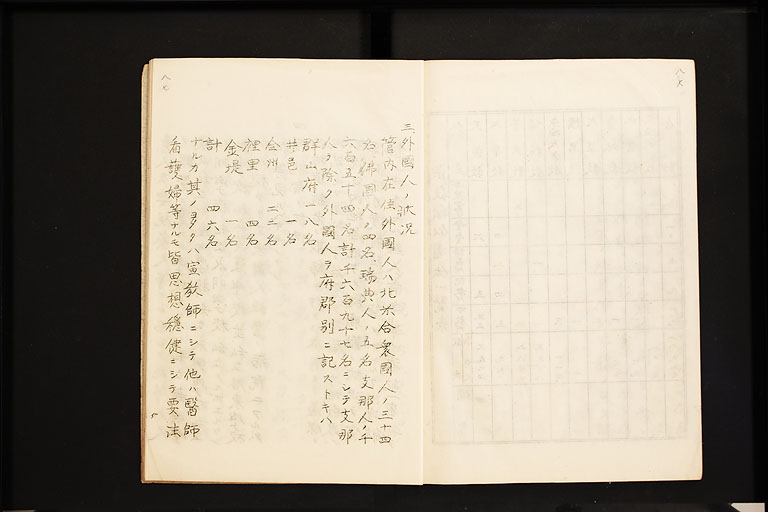 三、外國人ノ狀況
管内在住外國人ハ北米合衆國人ノ三十四
名佛國人ノ四名瑞典人ノ五名支那人ノ千
六百五十四名計千六百九十七名ニシテ支那
人ヲ除ク外國人ヲ府郡別ニ記ストキハ
群山府 一八名
井邑 一名
全州 二二名
裡里 四名
金堤 一名
計 四六名
ナルカ其ノ多クハ宣教師ニシテ他ハ醫師
看護婦等ナルモ皆思想穩健ニシテ要注